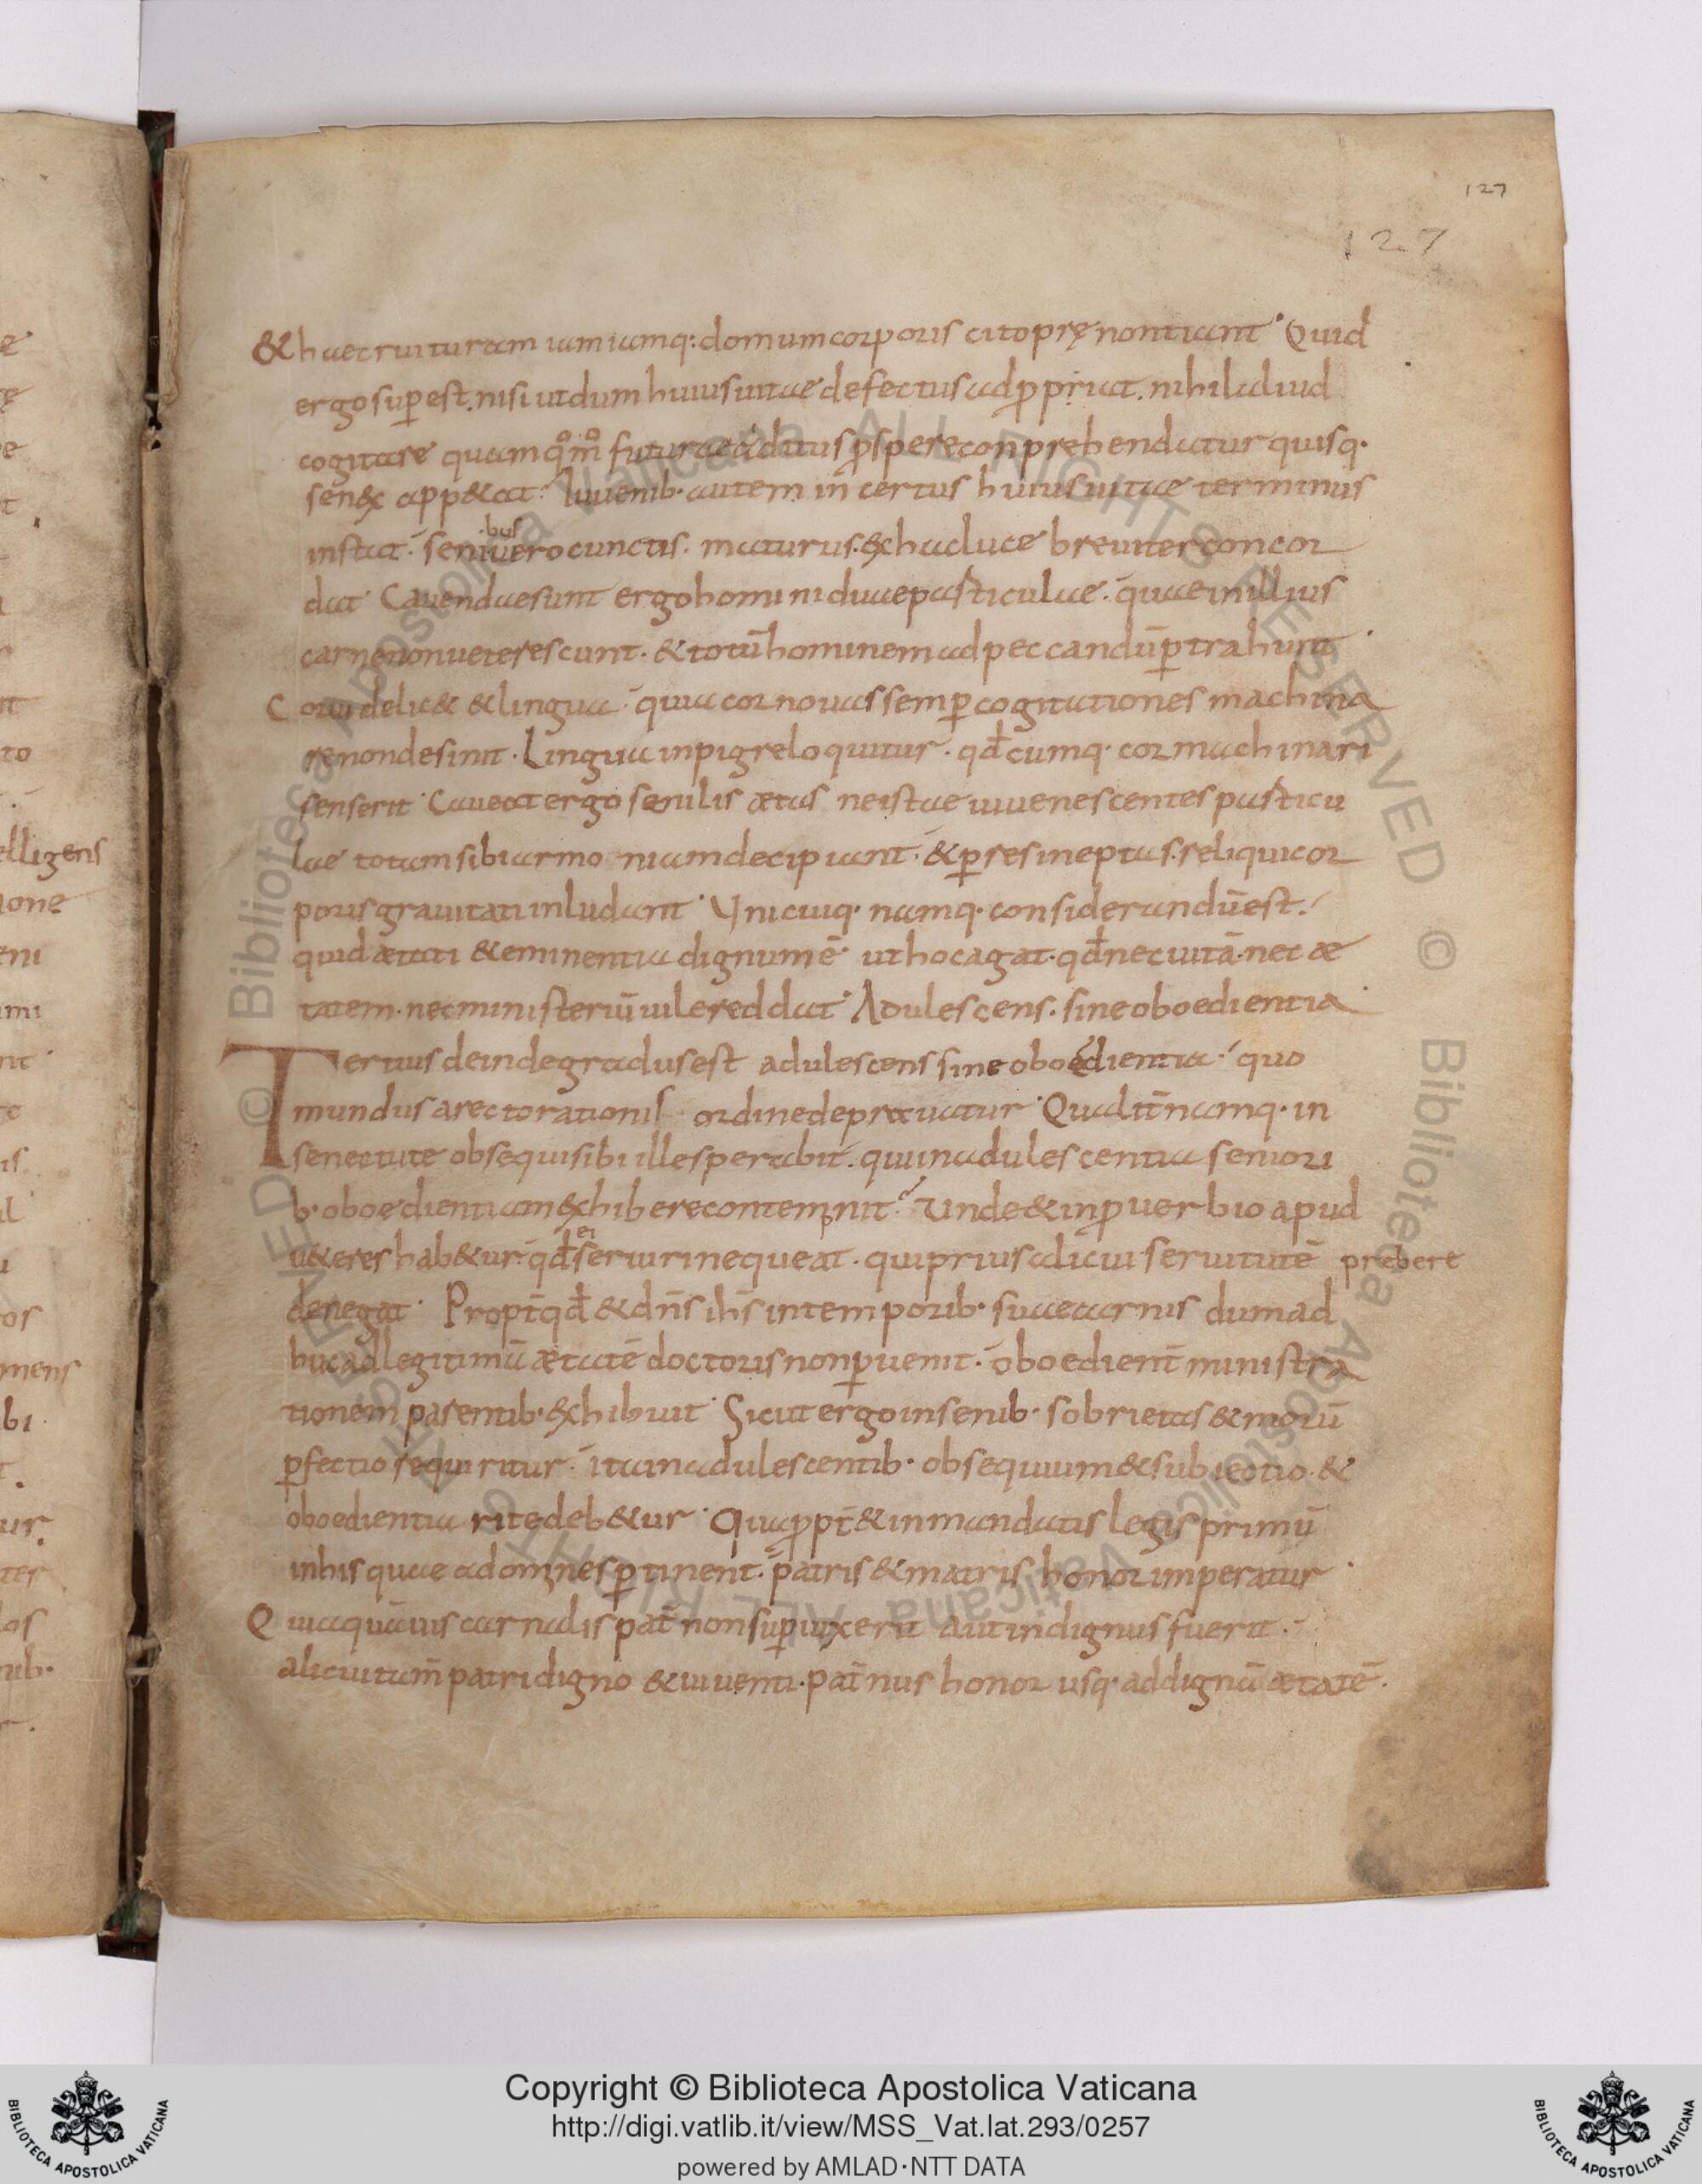 127
127
& haec ruituram iamiamq: domum corporis cito prę nontiant Quid
ergo sup̱ est. nisi ut dum huius uitae defectus adp̱priat. nihil aliud
cogitare quam qm̊ futurae aditus ꝓspere conprehendatur quisq·
sen&x app&at· Iuuenib· autem in certus huius uitae terminus
instat· seni·bus uero cunctis. maturus. &x hac luce breuiter concor
dat Cauendae sunt ergo homini duae pasticulae· quae in illius
carne non ueterescunt. & totū hominem ad peccandū p̱trahunt
Cor uidelic& & lingua· quia cor nouas semp̱ cogitationes machina
re non desinit. Lingua inpigre loquitur. qđcumq· cor machinari
senserit Caueat ergo senilis ætas ne istae iuuenescentes pasticu
lae totam sibi armo niam decipiant· & p̱ res ineptas. reliqui cor
poris grauitati inludant Unicuiq· namq· considerandū est.
quid ætati & eminentia dignum ē ut hoc agat. qđ nec uitā. nec æ
tatem. nec ministeriū uile reddat Adulescens. sine oboedientia
Tertius deinde gradus est adulescens sine oboedientia· quo
mundus a recto rationis ordine deprauatur Qualit̄ namq· in
senectute obsequi sibi ille sperabit. qui in adulescentia seniori
b· oboedientiam &xhibere contempnit Unde & in ꝓuerbio apud
u&eres hab&ur· qđ ei seruiri nequeat. qui prius alicui seruitutē prebere
denegat Propt̄ qđ & dn̄s ih̄s in temporib· suae carnis dum ad
huc ad legitimā ætatē doctoris non p̱uenit· oboedient̄ ministra
tionem parentib· &xhibuit Sicut ergo in senib· sobrietas & moriū
p̱fectio requiritur· ita in adulescentib· obsequium & subiectio &
oboedientia rite deb&ur Quaꝓpt̄ & in mandatis legis primū
in his quae ad omnes p̱tinent. patris & matris honor imperatur
Quia quāuis carnalis pat̄ non sup̱uixerit aut indignus fuerit·
alicui tam̄ patri digno & uiuenti. pat̄nus honor usq· ad dignā ætatē.
e
ę
e
t
to
elligens
ione
eni
imi
nt
is
os
mens
bi
ur
ter
los
nib·
Copyright © Biblioteca Apostolica Vaticana
http://digi.vatlib.it/view/MSS_Vat.lat.293/0257
powered by AMLAD·NTT DATA
BIBLIOTECA APOSTOLICA VATICANA
BIBLIOTECA APOSTOLICA VATICANA
© Biblioteca Apostolica Vaticana ALL RIGHTS RESERVED
© Biblioteca Apostolica Vaticana ALL RIGHTS RESERVED